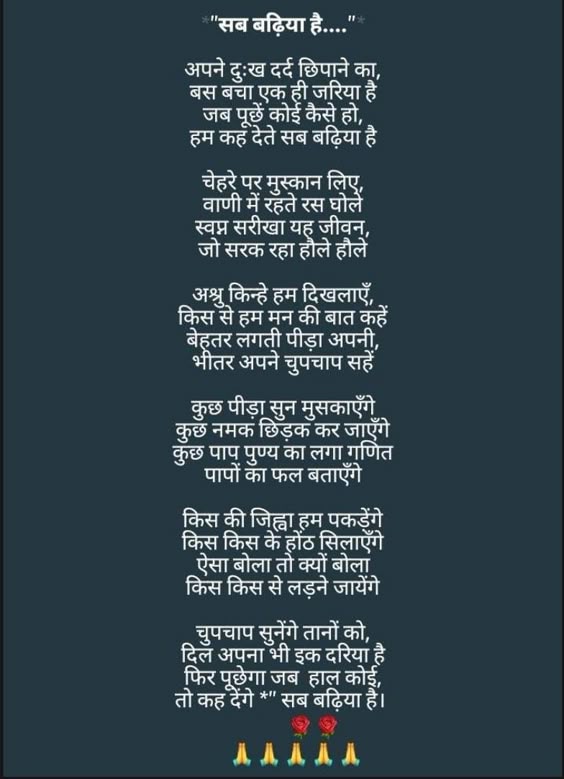 *"सब बढ़िया है...."*
अपने दुःख दर्द छिपाने का,
बस बचा एक ही जरिया है
जब पूछें कोई कैसे हो,
हम कह देते सब बढ़िया है
चेहरे पर मुस्कान लिए,
वाणी में रहते रस घोले
स्वप्न सरीखा यह जीवन,
जो सरक रहा हौले हौले
अश्रु किन्हे हम दिखलाएँ,
किस से हम मन की बात कहें
बेहतर लगती पीड़ा अपनी,
भीतर अपने चुपचाप सहें
कुछ पीड़ा सुन मुसकाएँगे
कुछ नमक छिड़क कर जाएँगे
कुछ पाप पुण्य का लगा गणित
पापों का फल बताएँगे
किस की जिह्वा हम पकड़ेंगे
किस किस के होंठ सिलाएँगे
ऐसा बोला तो क्यों बोला
किस किस से लड़ने जायेंगे
चुपचाप सुनेंगे तानों को,
दिल अपना भी इक दरिया है
फिर पूछेगा जब हाल कोई,
तो कह देंगे *" सब बढ़िया है।
🌹🌹
🙏🙏🙏🙏🙏